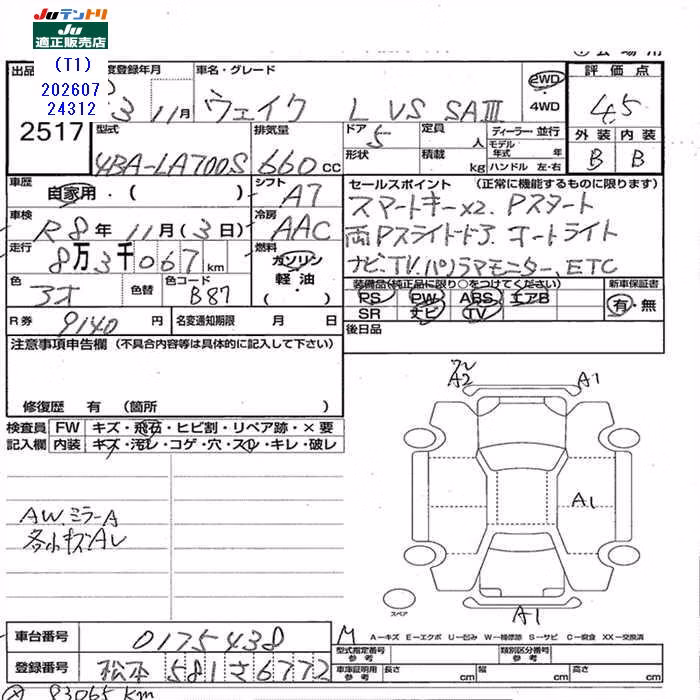 JUテントリ
JU
適正販売店
(T1)
202607
24312
出品
2517
度登録年月
3 11月
車名・グレード
ウェイク L VS SAⅢ
2WD
・
4WD
評価点
4.5
外装 内装
B B
型式
4BA-LA700S
排気量
660cc
ドア
5
形状
定員
人
積載
kg
ディーラー・並行
モデル年式 年
ハンドル 左・右
車歴
自家用・( )
シフト
A7
車検
R8年11月(3日)
冷房
AAC
走行
8万3千067km
燃料
ガソリン
軽油
・( )
色
アオ
色替
色コード
B87
R券
9140円
名変通知期限 月 日
セールスポイント (正常に機能するものに限ります)
スマートキーx2. Pスタート
両Pスライドドア. オートライト
ナビ.TV.パノラマモニター.ETC
装備品(純正品に限り○をつけてください)
PS PW ABS エアB
SR ナビ TV
新車保証書
有・無
後日品
注意事項申告欄 (不具合内容等は具体的に記入して下さい)
修復歴 有 (箇所 )
検査員
記入欄
FW キズ・飛石・ヒビ割・リペア跡・×要
内装 キズ・汚レ・コゲ・穴・スレ・キレ・破レ
AW.ミラーA
各小キズAU
ワレ
A2
A1
A1
A1
スペア
車台番号
0175438
登録番号
松本 581さ6772
M
A-キズ E-エクボ U-凹み W-補修跡 S-サビ C-腐食 XX-交換済
型式指定番号
参考
類別区分番号
参考
車庫証明用
参考
長さ cm
幅 cm
高さ cm
83065 km